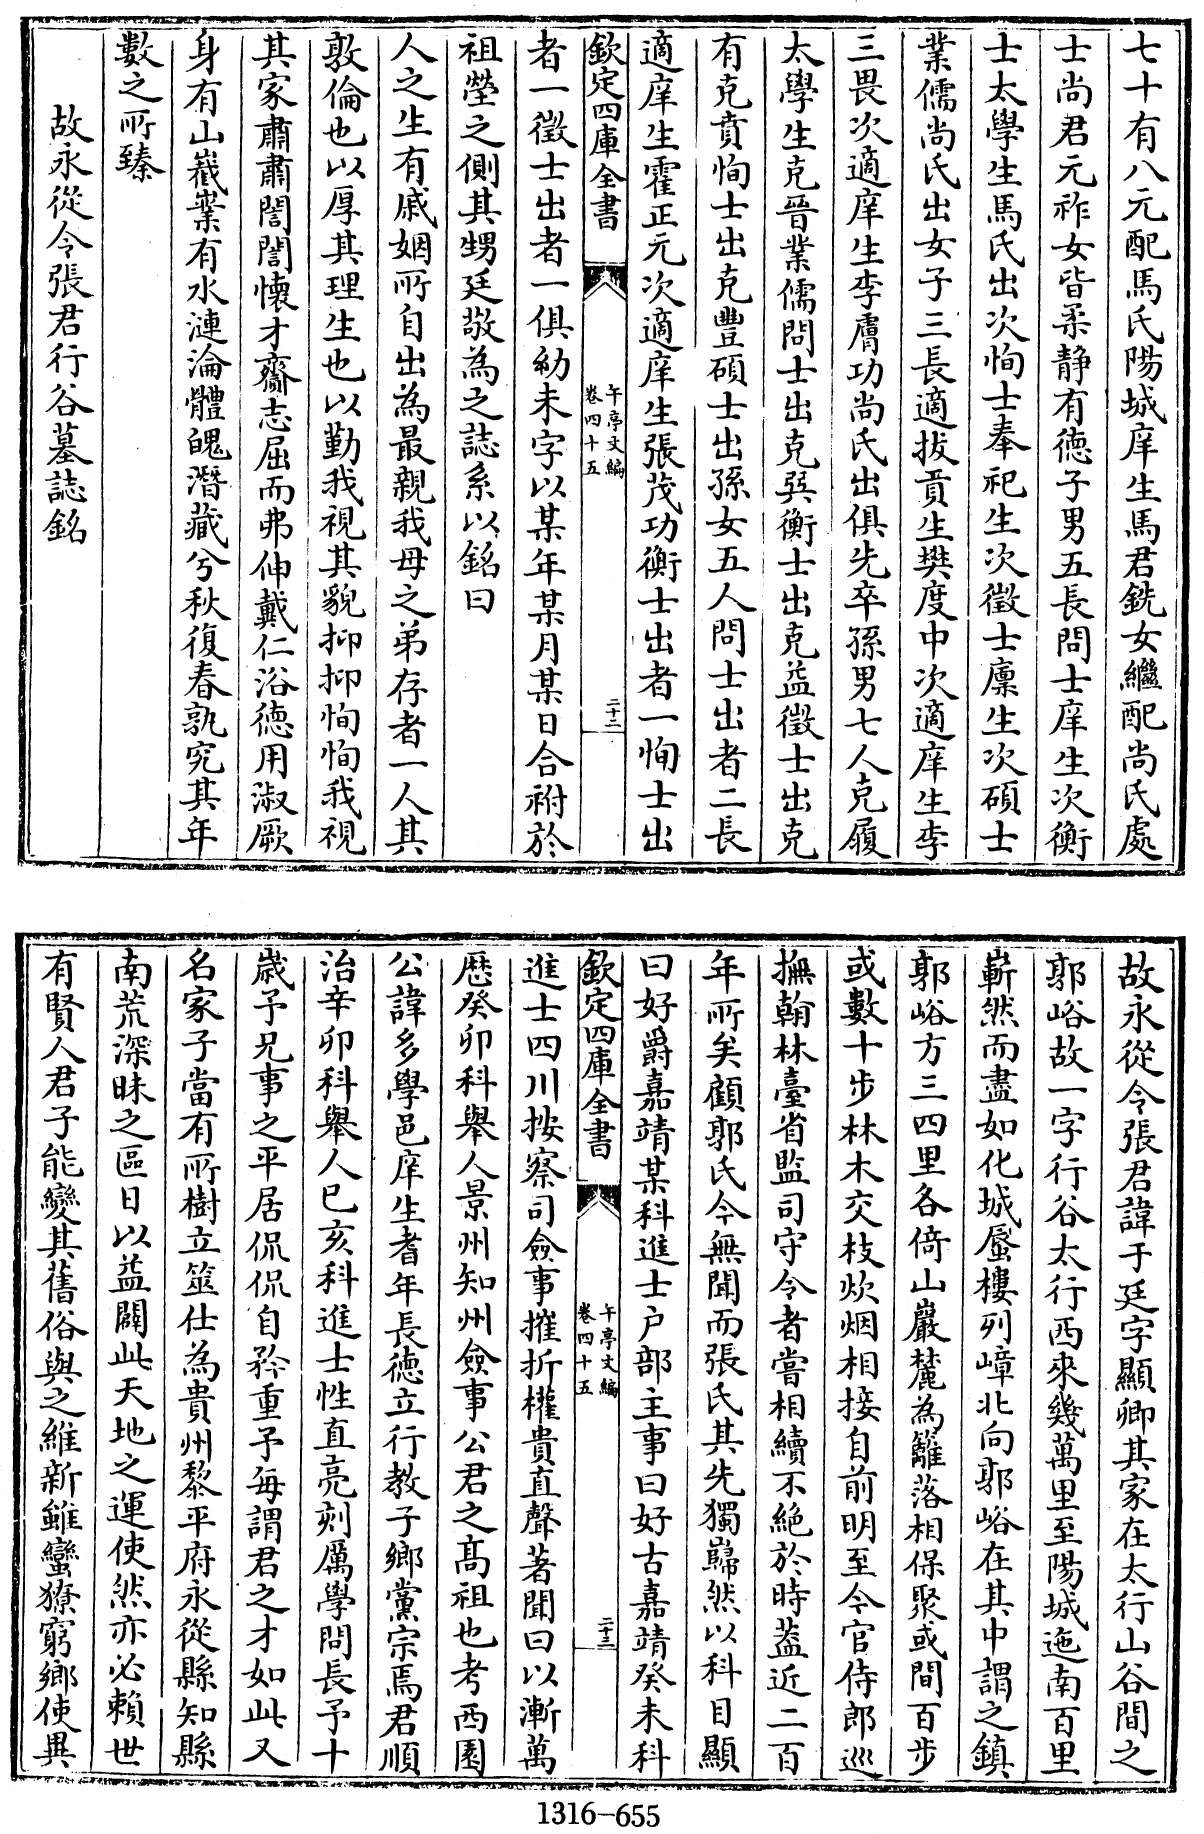 七十有八元配馬氏陽城庠生馬君銑女繼配尚氏處
士尚君元祚女皆柔静有德子男五長問士庠生次衡
士太學生馬氏出次恂士奉祀生次徵士廪生次碩士
業儒尚氏出女子三長適拔貢生樊度中次適庠生李
三畏次適庠生李膚功尚氏出俱先卒孫男七人克履
太學生克晉業儒問士出克㢲衡士出克益徵士出克
有克賁恂士出克豐碩士出孫女五人問士出者二長
適庠生霍正元次適庠生張茂功衡士出者一恂士出
欽定四庫全書
午亭文編
卷四十五
二十二
者一徵士出者一俱幼未字以某年某月某日合祔於
祖塋之側其甥廷敬為之誌系以銘曰
人之生有戚姻所自出為最親我母之弟存者一人其
敦倫也以厚其理生也以勤我視其貌抑抑恂恂我視
其家肅肅誾誾懷才齎志屈而弗伸戴仁浴德用淑厥
身有山嶻嶪有水漣淪體魄潛藏兮秋復春孰究其年
數之所臻
故永從令張君行谷墓誌銘
故永從令張君諱于廷字顯卿其家在太行山谷間之
郭峪故一字行谷太行西來幾萬里至陽城迤南百里
嶄然而盡如化城蜃樓列嶂北向郭峪在其中謂之鎮
郭峪方三四里各倚山巖麓為籬落相保聚或間百步
或數十步林木交枝炊烟相接自前明至今官侍郎巡
撫翰林臺省監司守令者嘗相續不絶於時蓋近二百
年所矣顧郭氏今無聞而張氏其先獨巋然以科目顯
曰好爵嘉靖某科進士户部主事曰好古嘉靖癸未科
欽定四庫全書
午亭文編
卷四十五
二十三
進士四川按察司僉事摧折權貴直聲著聞曰以漸萬
歴癸卯科舉人景州知州僉事公君之髙祖也考西園
公諱多學邑庠生耆年長德立行教子鄉黨宗焉君順
治辛卯科舉人已亥科進士性直亮刻厲學問長予十
歲予兄事之平居侃侃自矜重予每謂君之才如此又
名家子當有所樹立筮仕為貴州黎平府永從縣知縣
南荒深昧之區日以益闢此天地之運使然亦必賴世
有賢人君子能變其舊俗與之維新雖蠻獠窮鄉使異
1316-655